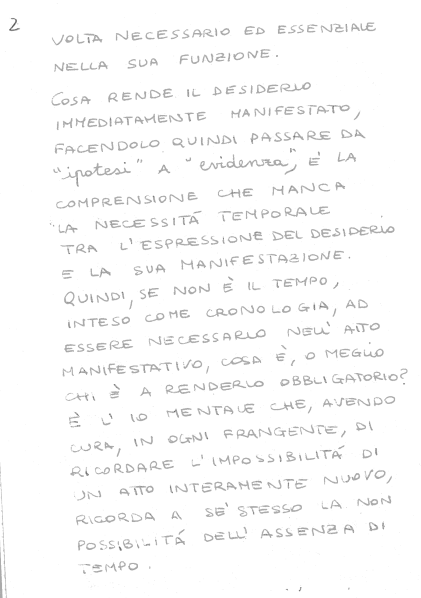 2
VOLTA NECESSARIO ED ESSENZIALE
NELLA SUA FUNZIONE.
COSA RENDE IL DESIDERIO
IMMEDIATAMENTE MANIFESTATO,
FACENDOLO QUINDI PASSARE DA
"ipotesi" A "evidenza", É LA
COMPRENSIONE CHE MANCA
LA NECESSITÁ TEMPORALE
TRA L'ESPRESSIONE DEL DESIDERIO
E LA SUA MANIFESTAZIONE.
QUINDI, SE NON È IL TEMPO,
INTESO COME CRONOLOGIA, AD
ESSERE NECESSARIO NELL'ATTO
MANIFESTATIVO, COSA È, O MEGLIO
CHI È A RENDERLO OBBLIGATORIO?
È L'IO MENTALE CHE, AVENDO
CURA, IN OGNI FRANGENTE, DI
RICORDARE L'IMPOSSIBILITÁ DI
UN ATTO INTERAMENTE NUOVO,
RICORDA A SE'STESSO LA NON
POSSIBILITÁ DELL'ASSENZA DI
TEMPO.